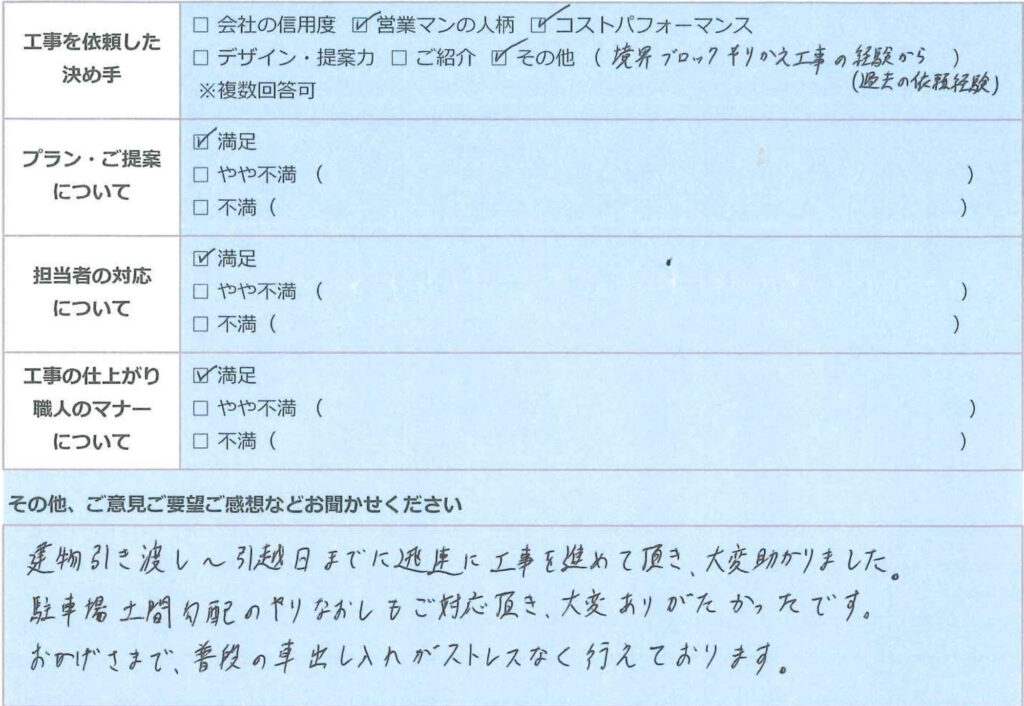 工事を依頼した
決め手
□ 会社の信用度 ☑ 営業マンの人柄 ☑ コストパフォーマンス
□ デザイン・提案力 □ ご紹介 ☑ その他 ( 境界ブロックやりかえ工事の経験から )
(過去の依頼経験)
※複数回答可
プラン・ご提案
について
☑ 満足
□ やや不満 ( )
□ 不満 ( )
担当者の対応
について
☑ 満足
□ やや不満 ( )
□ 不満 ( )
工事の仕上がり
職人のマナー
について
☑ 満足
□ やや不満 ( )
□ 不満 ( )
その他、ご意見ご要望ご感想などお聞かせください
建物引き渡し〜引越日までに迅速に工事を進めて頂き、大変助かりました。
駐車場土間勾配のやりなおしもご対応頂き、大変ありがたかったです。
おかげさまで、普段の車出し入れがストレスなく行えております。